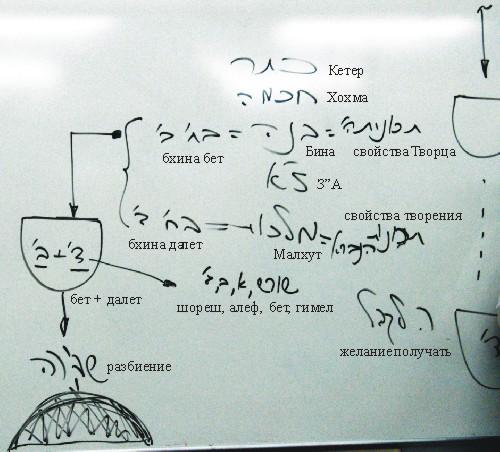 כתר Кетер
חכמה Хохма
בח' ב' = בינה = תכונות ה'
бхина бет Бина свойства Творца
ז"א З”А
свойства творения
בח' ד' = מלכות =
бхина далет Малхут
ד' + ב'
שורש, א, ב, ג'
бет + далет шореш, алеф, бет, гимел
ר. לקבל
желание получать
שבירה разбиение